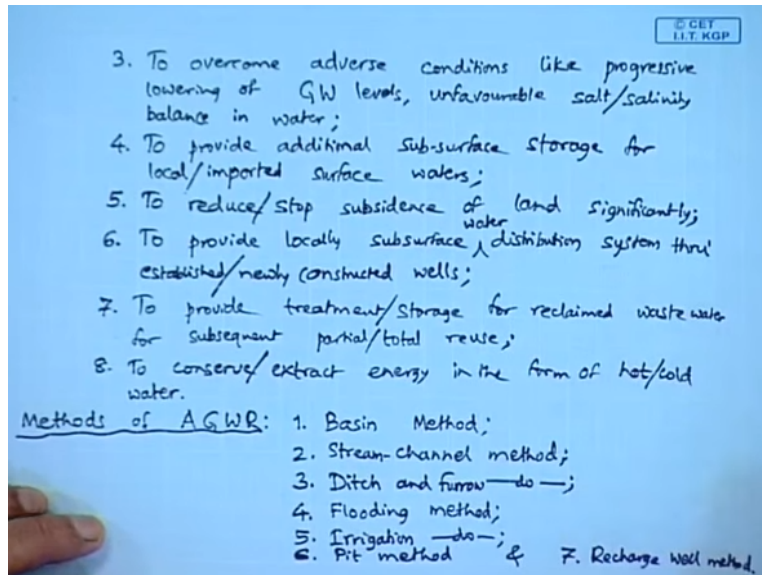 © CET
I.I.T. KGP
3. To overcome adverse conditions like progressive
lowering of GW levels, unfavourable salt/salinity
balance in water;
4. To provide additional sub-surface storage for
local/imported surface waters;
5. To reduce/stop subsidence of land significantly;
6. To provide locally subsurface water distribution system thru'
established/newly constructed wells;
7. To provide treatment/storage for reclaimed waste water
for subsequent partial/total reuse;
8. To conserve/extract energy in the form of hot/cold
water.
Methods of AGWR: 1. Basin Method;
2. Stream-channel method;
3. Ditch and furrow —do—;
4. Flooding method;
5. Irrigation —do—;
6. Pit method & 7. Recharge well method.